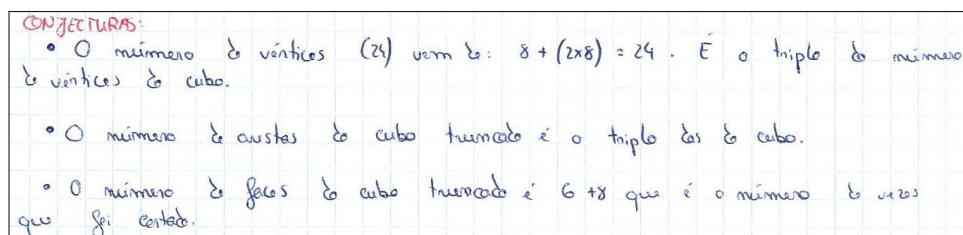 CONJECTURAS:
• O número de vértices (24) vem de: 8 + (2x8) = 24. É o triplo do número
de vértices do cubo.
• O número de arestas do cubo truncado é o triplo das do cubo.
• O número de faces do cubo truncado é 6 +8 que é o número de vezes
que foi cortado.